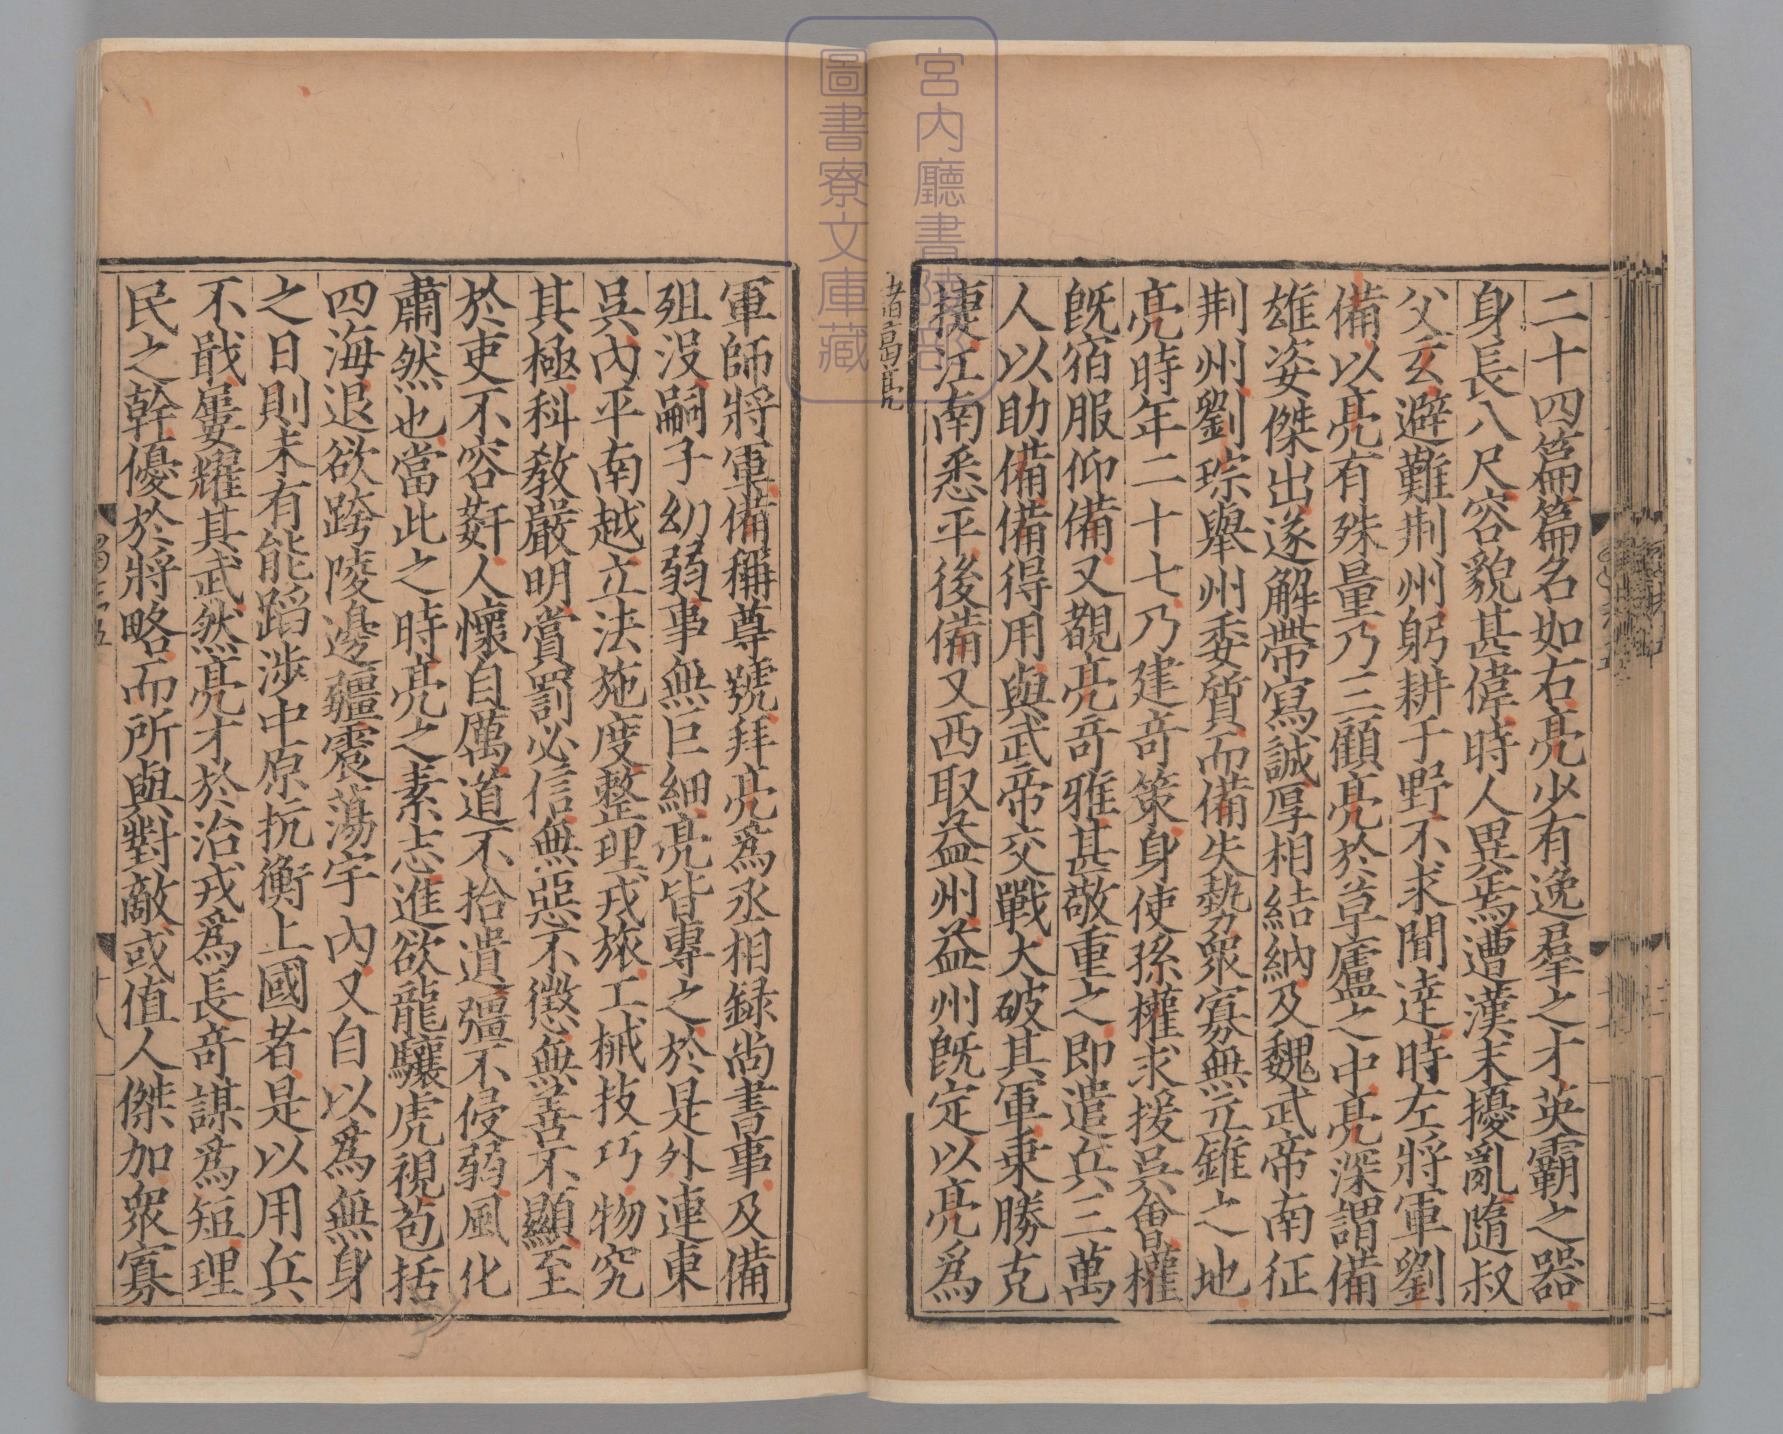 二十四篇篇名如右亮少有逸羣之才英霸之器
身長八尺容貌甚偉時人異焉遭漢末擾亂隨叔
父玄避難荆州躬耕于野不求聞達時左將軍劉
備以亮有殊量乃三顧亮於草廬之中亮深謂備
雄姿傑出遂解帶寫誠厚相結納及魏武帝南征
荆州劉琮舉州委質而備失勢衆寡無立錐之地
亮時年二十七乃建奇策身使孫權求援吳會權
旣宿服仰備又覩亮奇雅甚敬重之即遣兵三萬
人以助備備得用與武帝交戰大破其軍乗勝克
捷江南悉平後備又西取益州益州旣定以亮爲
諸葛亮
軍師將軍備稱尊號拜亮爲丞相録尚書事及備
殂没嗣子幼弱事無巨細亮皆專之於是外連東
吳內平南越立法施度整理戎旅工械技巧物究
其極科敎嚴明賞罰必信無惡不懲無善不顯至
於吏不容奸人懷自厲道不拾遺彊不侵弱風化
肅然也當此之時亮之素志進欲龍驤虎視苞括
四海退欲跨陵邊疆震蕩宇內又自以爲無身
之日則未有能蹈渉中原抗衡上國者是以用兵
不戢屢耀其武然亮才於治戎爲長奇謀爲短理
民之幹優於將略而所與對敵或值人傑加衆寡
蜀志五
十八
宮内廳書陵部
圖書寮文庫藏